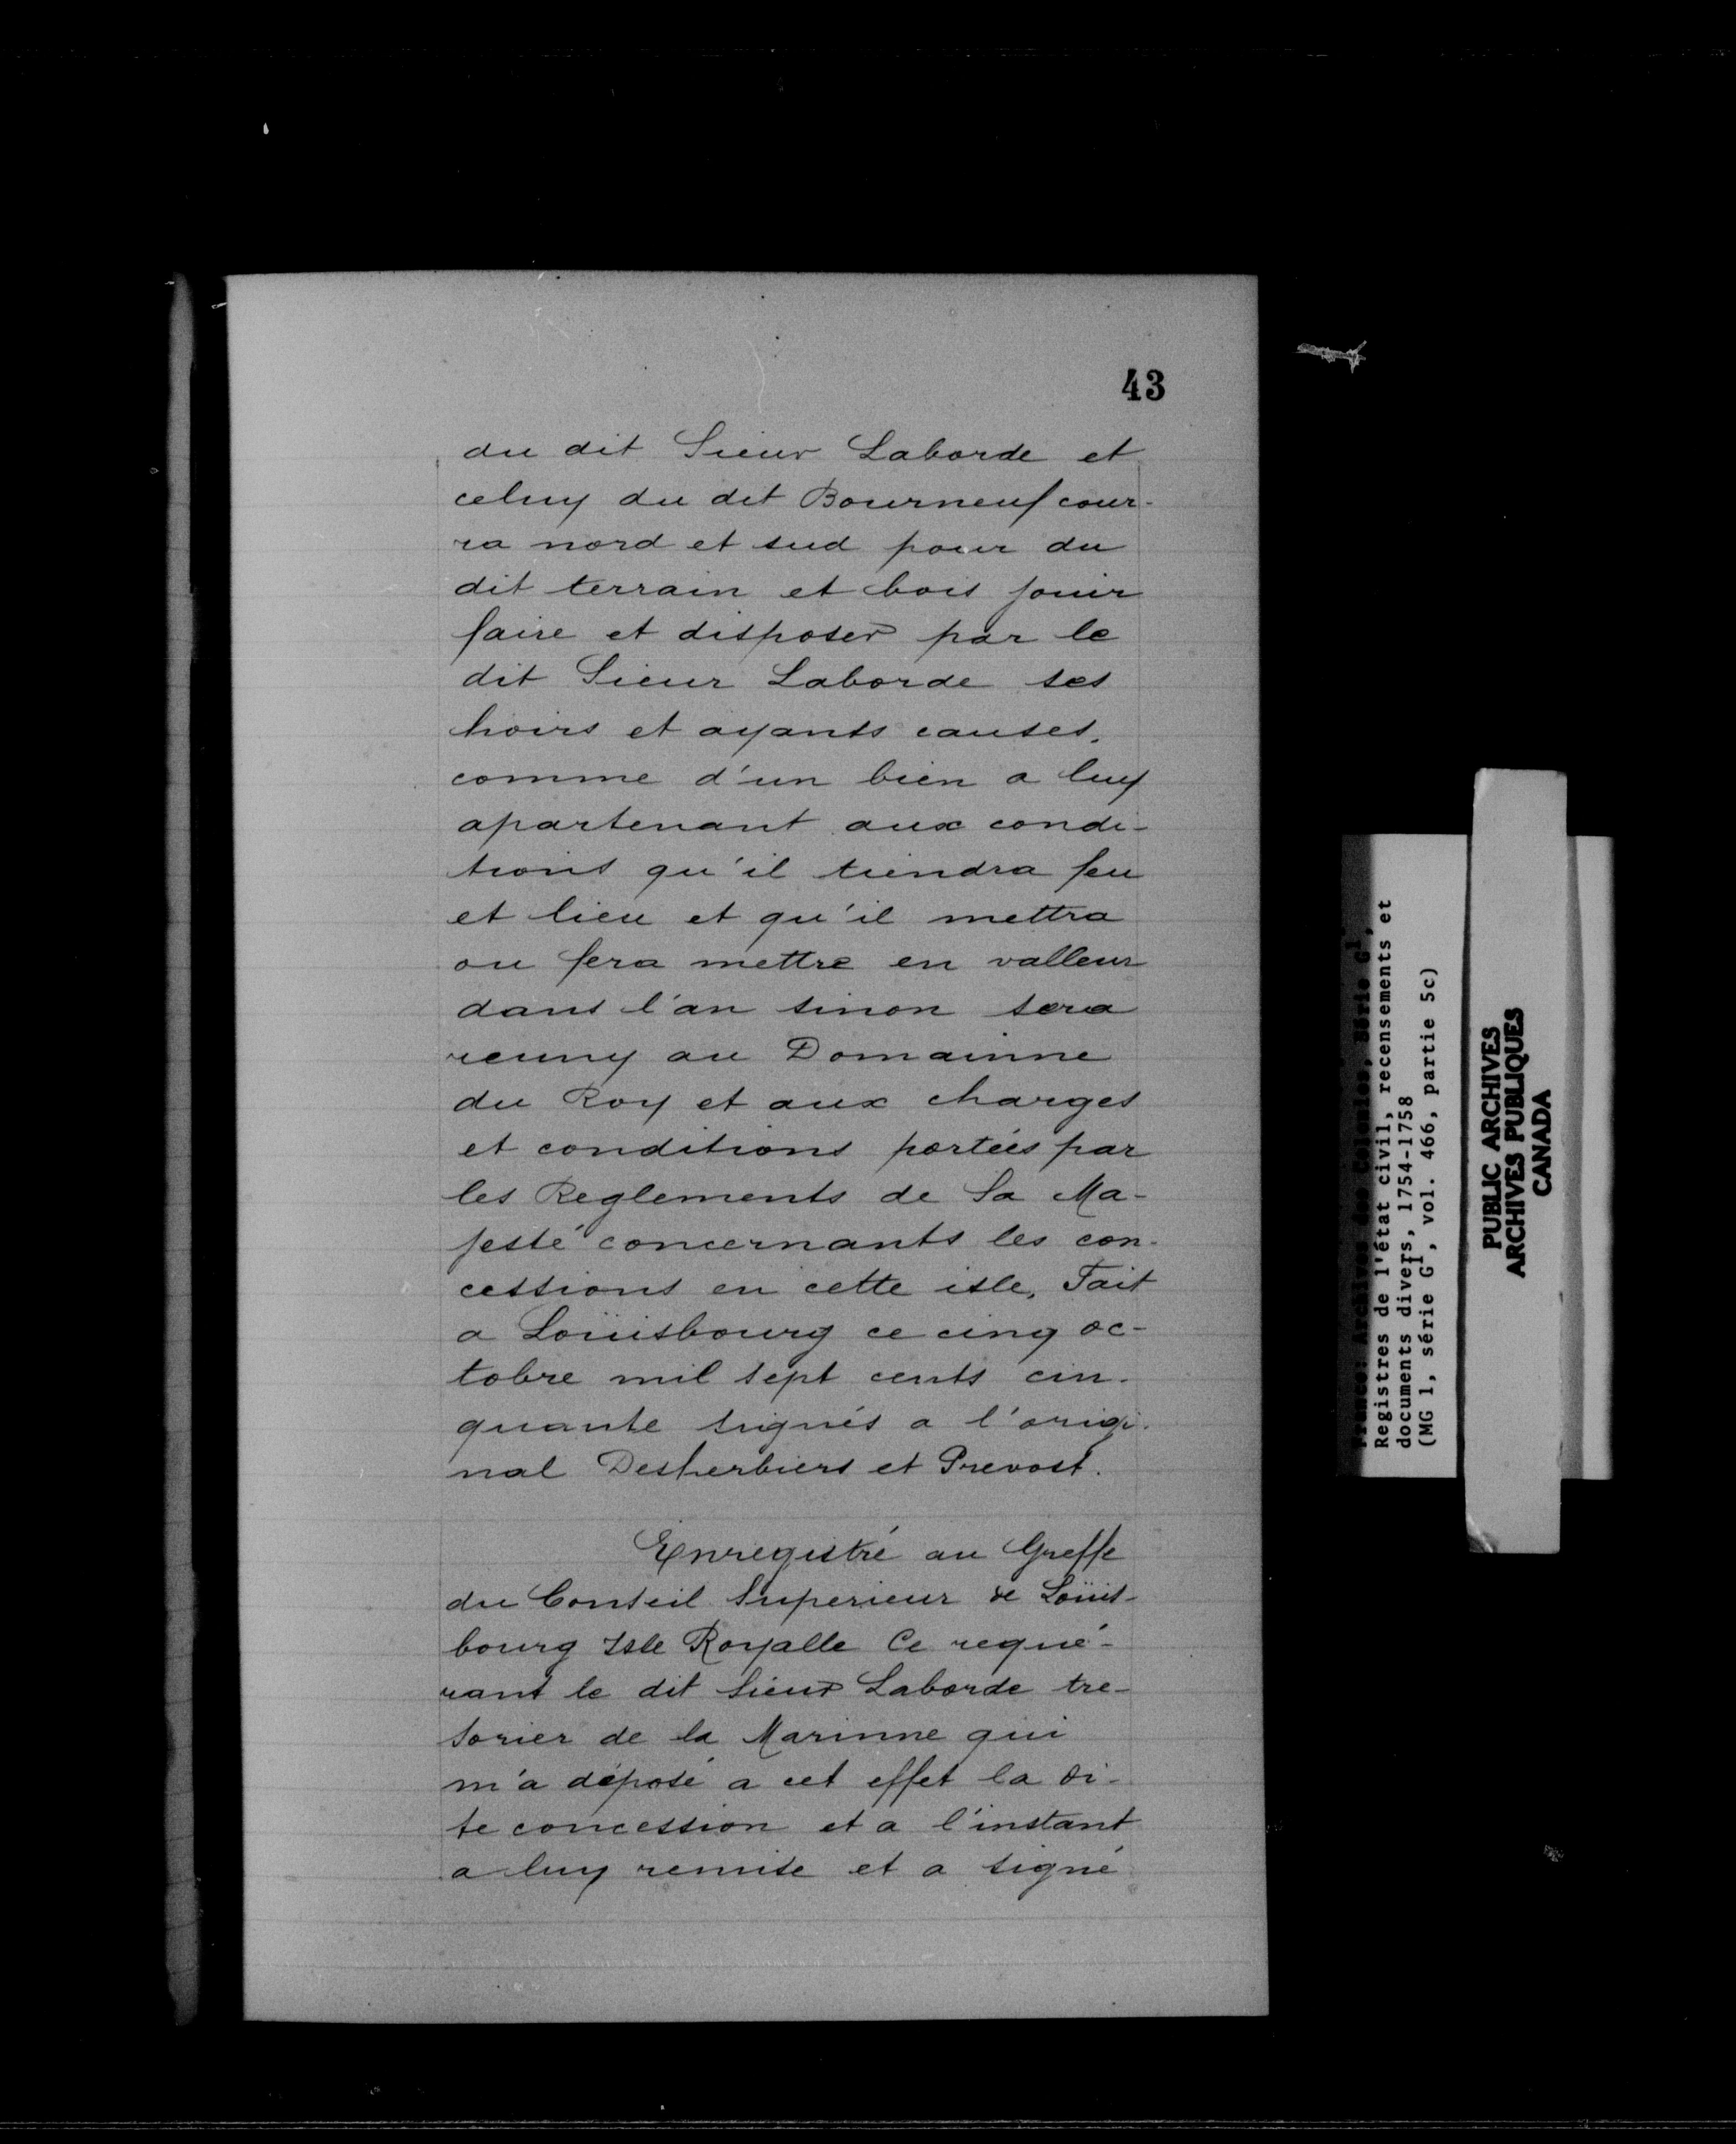 43
du dit Sieur Laborde et
celuy du dit Bourneuf cour-
ra nord et sud pour du
dit terrain et bois jouir
faire et disposer par le
dit Sieur Laborde ses
hoirs et ayants causes,
comme d'un bien a luy
apartenant aux condi-
tions qu'il tiendra feu
et lieu et qu'il mettra
ou fera mettre en valleur
dans l'an sinon sera
reuny au Domainne
du Roy et aux charges
et conditions portées par
les Reglements de Sa Ma-
jesté concernants les con-
cessions en cette isle, Fait
a Loüisbourg ce cinq oc-
tobre mil sept cents cin-
quante signés a l'origi-
nal Desherbiers et Prevost.
Enregistré au Greffe
du Conseil Superieur de Loüis-
bourg Isle Royalle Ce requé-
rant le dit Sieur Laborde tre-
sorier de la Marinne qui
m'a déposé a cet effet la di-
te concession et a l'instant
a luy remise et a signé
France: Archives des Colonies, Série G1,
Registres de l'état civil, recensements et
documents divers, 1754-1758
(MG 1, série G1, vol. 466, partie 5c)
PUBLIC ARCHIVES
ARCHIVES PUBLIQUES
CANADA